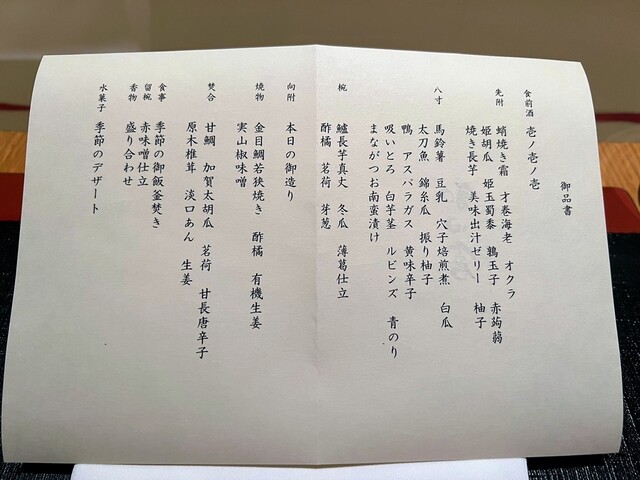 御品書
食前酒 壱ノ壱ノ壱
先附 蛸焼き霜 才巻海老 オクラ
姫胡瓜 姫玉蜀黍 鶉玉子 赤蒟蒻
焼き長芋 美味出汁ゼリー 柚子
八寸 馬鈴薯 豆乳 穴子焙煎煮 白瓜
太刀魚 錦糸瓜 振り柚子
鴨 アスパラガス 黄味辛子
吸いとろ 白芋茎 ルビンズ 青のり
まながつお南蛮漬け
椀 鱸長芋真丈 冬瓜 薄葛仕立
酢橘 茗荷 芽葱
向附 本日の御造り
焼物 金目鯛若狭焼き 酢橘 有機生姜
実山椒味噌
焚合 甘鯛 加賀太胡瓜 茗荷 甘長唐辛子
原木椎茸 淡口あん 生姜
食事 季節の御飯釜焚き
留椀 赤味噌仕立
香物 盛り合わせ
水菓子 季節のデザート